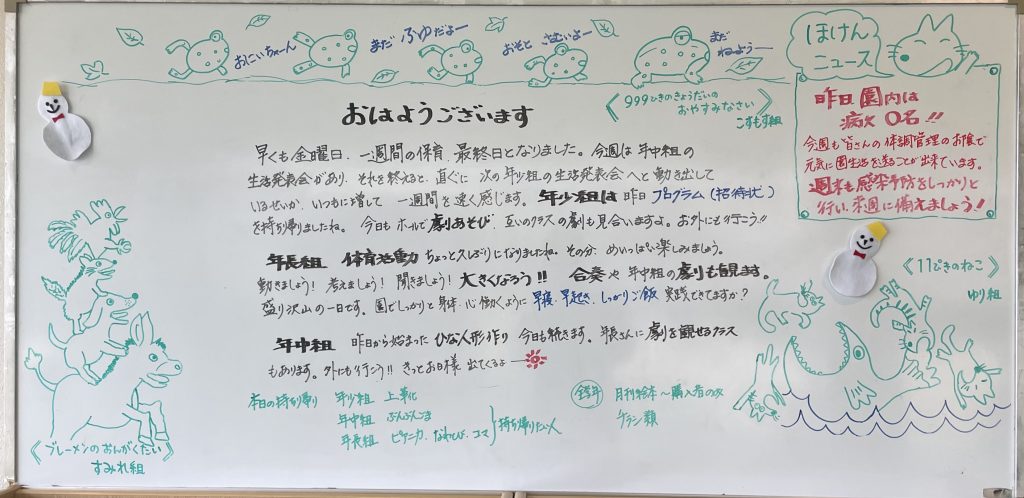 おにいちゃーん
まだ ふゆだよー
おそと さむいよー
まだ
ねようー
《999ひきのきょうだいの
おやすみなさい》
こすもす組
ほけん
ニュース
昨日 園内は
病欠 0名!!
今週も皆さんの体調管理のお陰で
元気に園生活を送ることが出来ています。
週末も感染予防をしっかりと
行い、来週に備えましょう!!
おはようございます
早くも金曜日、一週間の保育、最終日となりました。今週は年中組の
生活発表会があり、それを終えると、直ぐに次の年少組の生活発表会へと動き出して
いるせいか、いつもに増して 一週間を速く感じます。年少組は昨日プログラム(招待状)
を持ち帰りましたね。今日もホールで劇あそび、互いのクラスの劇も見合いますよ。お外にも行こう!!
年長組 体育活動 ちょっと久しぶりになりましたね。その分、めいっぱい楽しみましょう。
動きましょう! 考えましょう! 聞きましょう! 大きくなろう!! 合奏や年中組の劇も観ます。
盛り沢山の一日です。園でしっかりと身体・心 働くように 早寝・早起き・しっかりご飯 実践できてますか?
年中組 昨日から始まった ひな人形作り 今日も続きます。年長さんに劇を観せるクラス
もあります。外にも行こう!! きっとお日様 出てくるよ
《11ぴきのねこ》
ゆり組
《ブレーメンのおんがくたい》
すみれ組
本日の持ち帰り 年少組 上靴
年中組 ぶんぶんごま
年長組 ピアニカ、なわとび、コマ } 持ち帰りたい人
全学年 月刊絵本〜購入者のみ
チラシ類